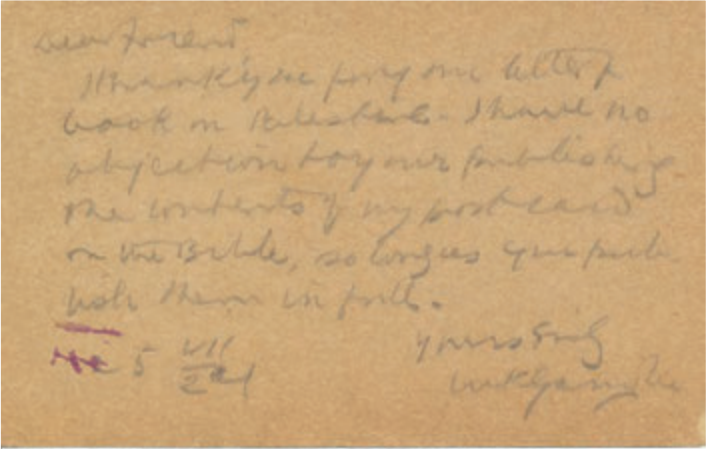 Dear Friend,
I thank you for your letter &
book on Palestine. I have no
objection to your publishing
the contents of my post card
on the Bible, so long as you pub
lish them in full.
5 VII
Yours Sincly
MKGandhi